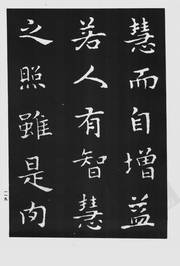 慧而自增益
若人有智慧
之照雖是肉
一一九